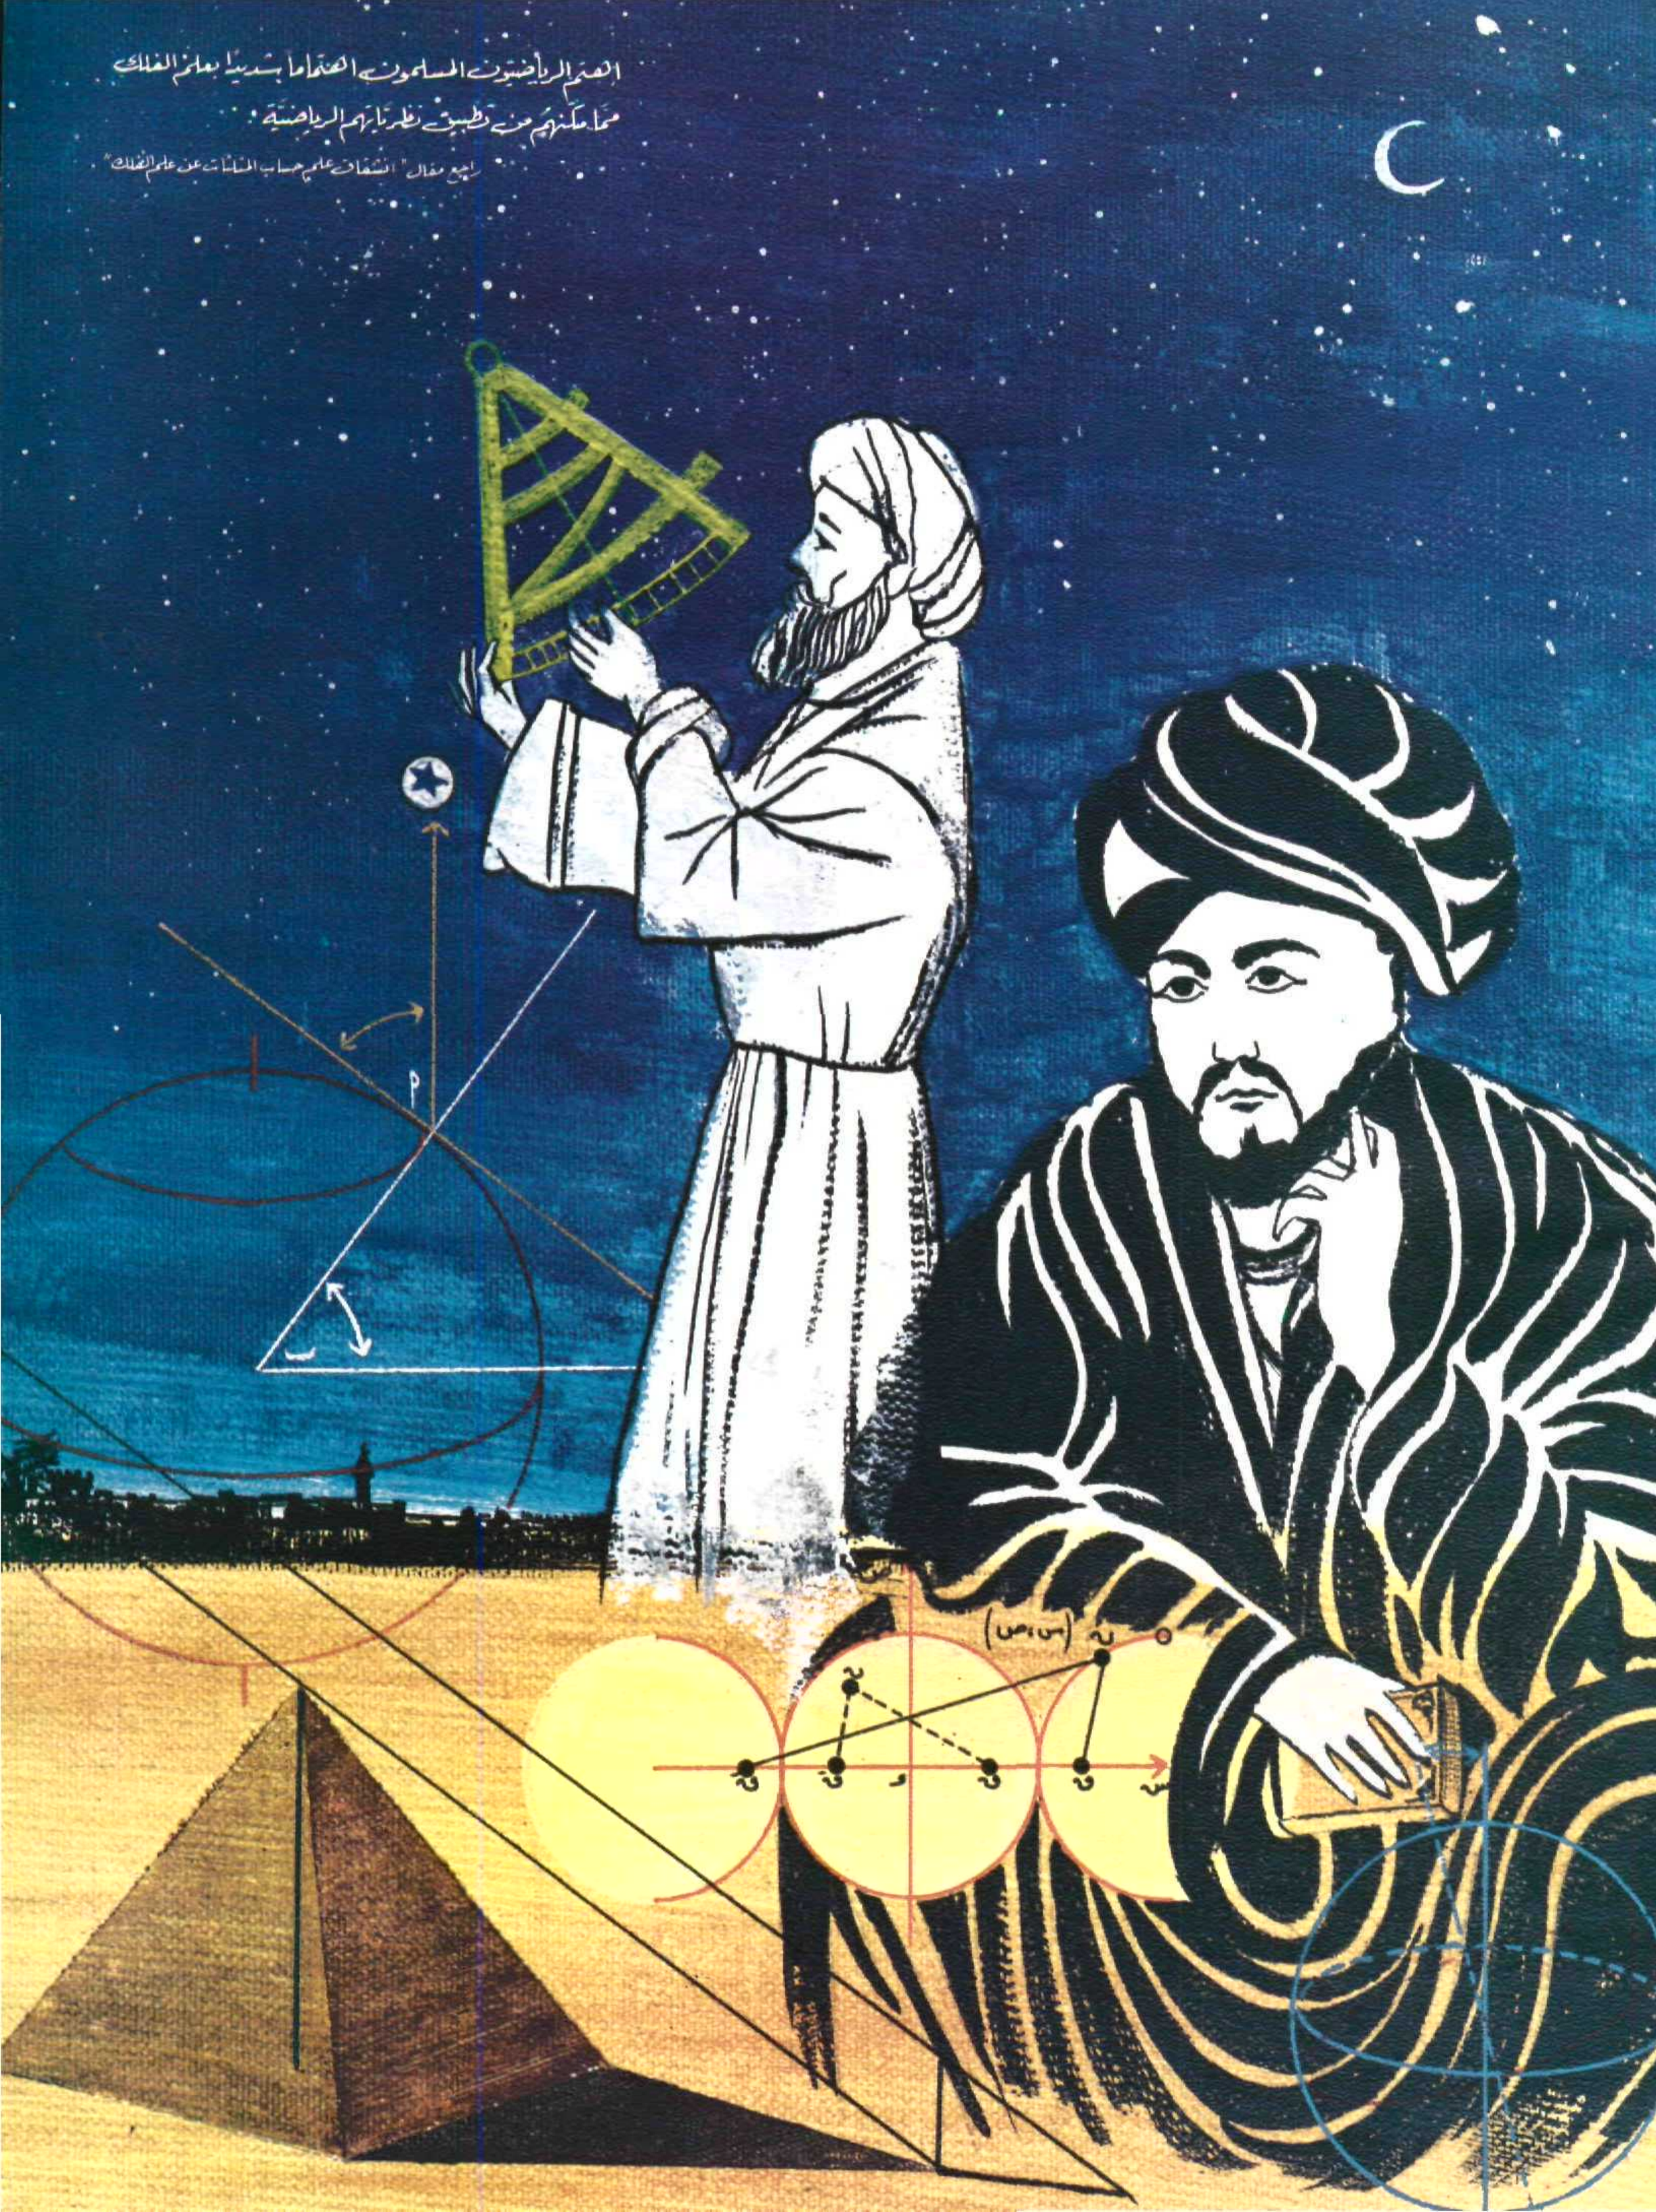 اهتم الرياضيّون المسلمون اهتماماً شديدًا بعلم الفلك
ممّا مكّنهم من تطبيق نظريّاتهم الرياضيّة.
راجع مقال "انشقاق علم حساب المثلثات عن علم الفلك".
م
ب
ن (س،ص)
و
س